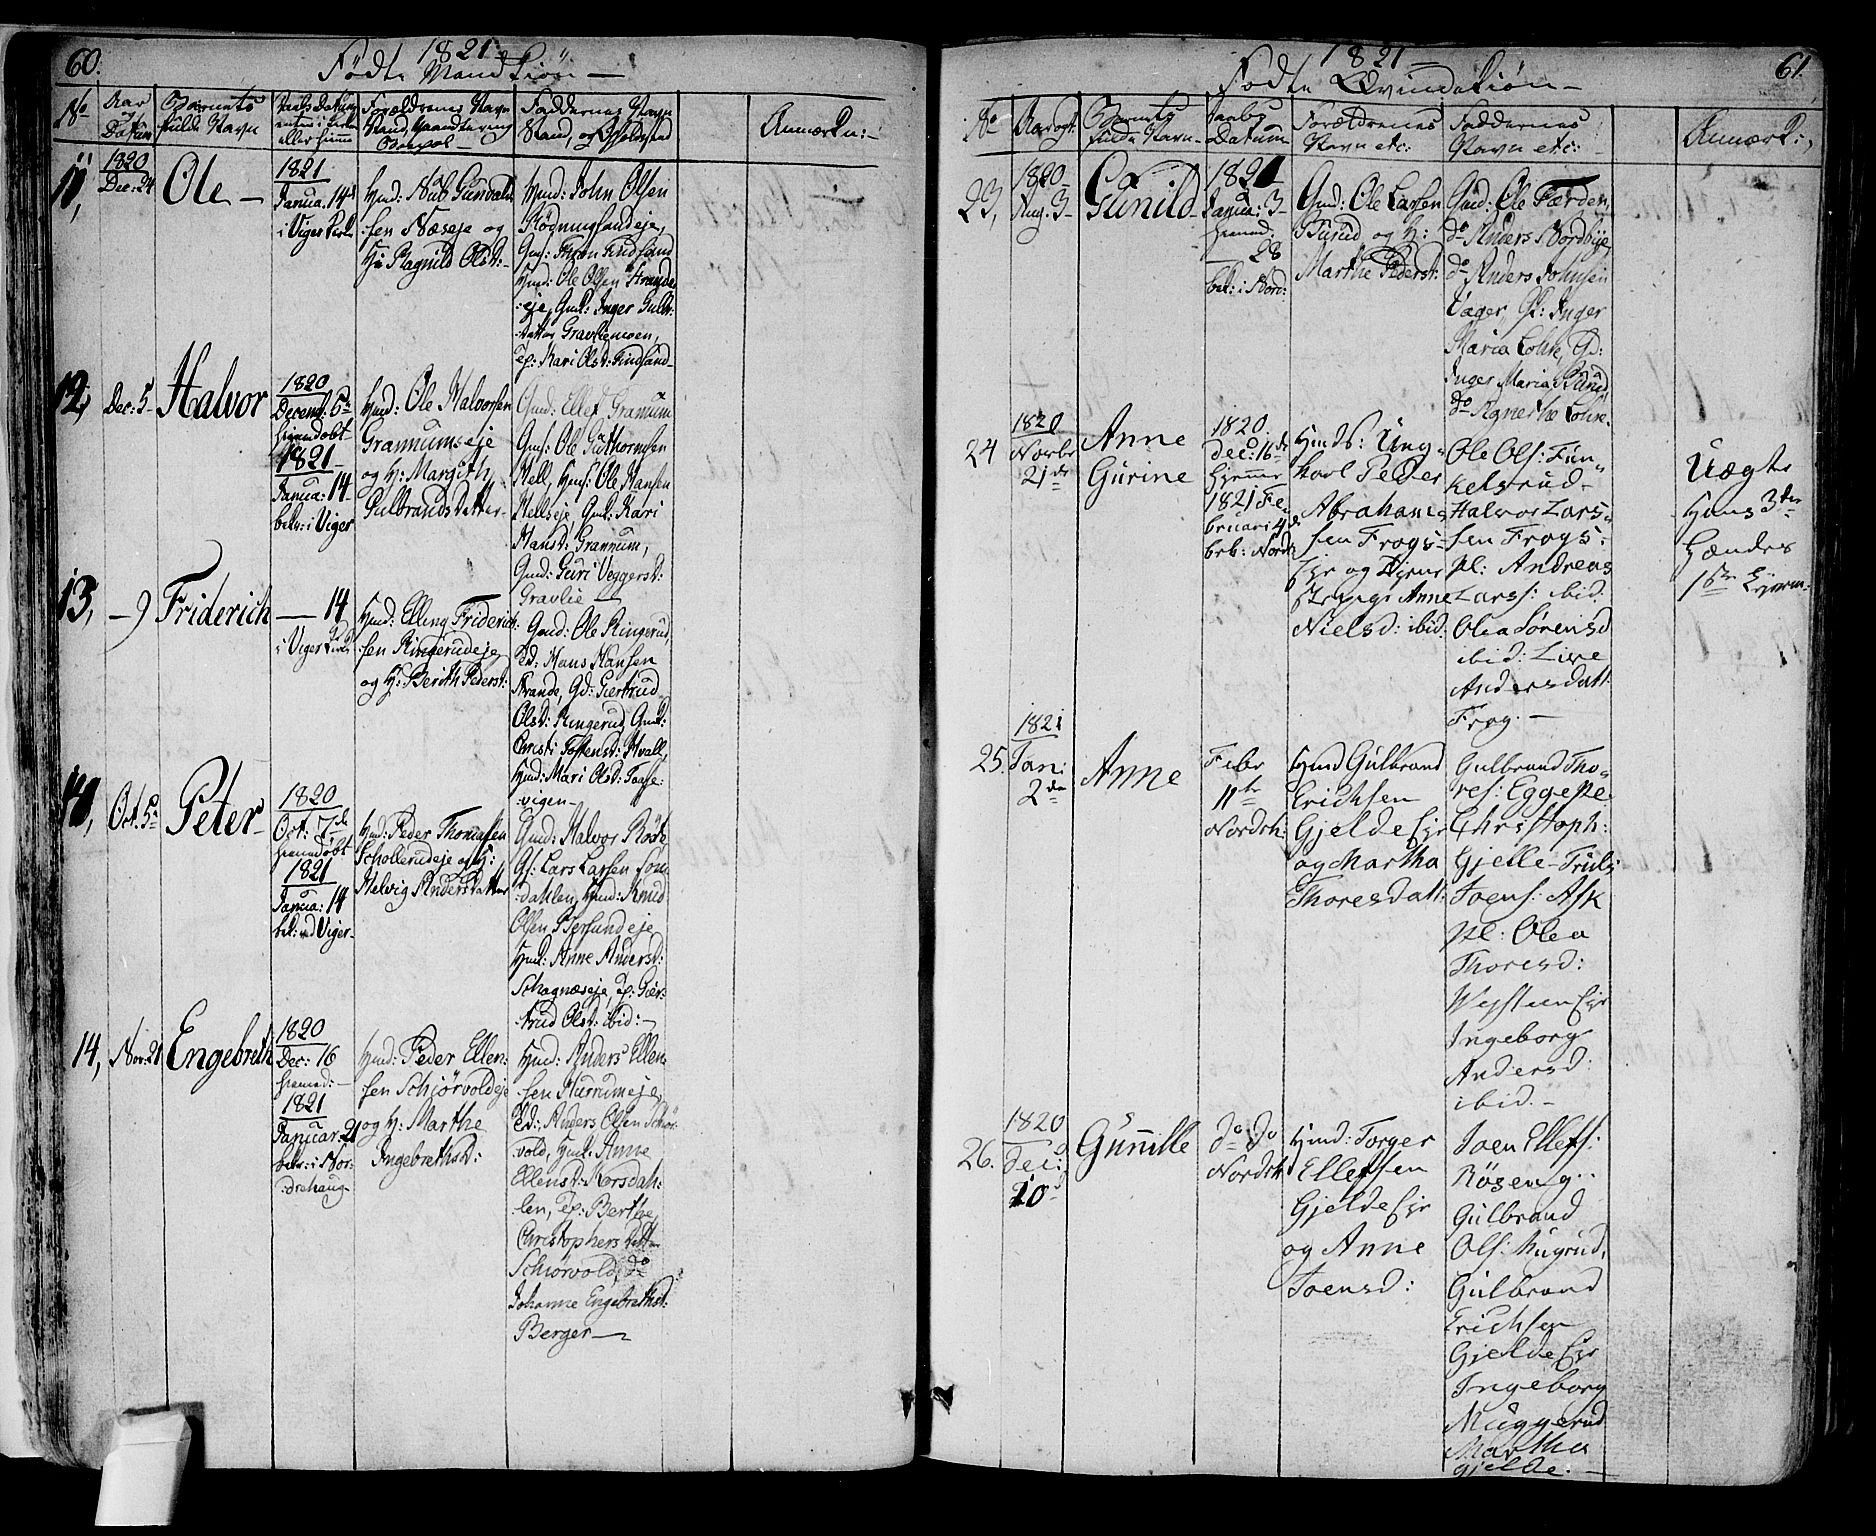 60.
1821
Fødte Mandkiön —
No
Aar og Datum
Barnets fulde Navn
Forældrenes Navn
Faddernes Navn
Stand, og Opholdsted
Anmærkn:
11,
1820
Dec: 24
Ole —
1821
Janua. 14d
i Viger Kirke
Hmd: Gundald-
sen Næseje og
H: Ragnild Olsd:
Hmd: John Olsen
Rødningsandeje,
Hmd: Ole Olsen Strande
:eje, Gmk: Inger Gulb:
:datter Gravliemoen,
Tp: Kari Olsd: Findsand
12,
Dec: 5
Halvor
1820
Decemb. 5te
hiemedøbt
1821
Janua: 14
bekr: i Viger
Hmd: Ole Halvorsen
Gramumseje
og H: Margith
Gulbrandsdatter
Gmd: Ellef Gramum
Gms: Ole Guthormsen
Hell, Hms: Ole Hansen
Hellseje, Gmk: Kari
Hansd: Gramum,
Gmd: Guri Veggersd:
Gravlie —
13,
— 9
Friderich
— 14
i Viger Kirke
Hmd: Elling Friderich:
sen Ringerudeje
og H: Berith Pedersd:
Gmd: Ole Ringerud,
Ed: Hans Hansen
Strande, Gd: Giertrud
Olsd: Ringerud, Gmd:
Christi Tostensd: Hvall,
Hmd: Mari Olsd: Taase-
:vigen —
Oct. 5te
Peter
1820
Oct: 7de
hiemedøbt
1821
Janua: 14
bek: ved Viger
Hmd: Peder Thomassen
Schollerudeje og H:
Helvig Andersdatter
Gmd: Halvor Röste
Gs: Lars Larsen Son-
:dahlen, Hmd: Knud
Olsen Bersundeje
Hmd: Anne Andersd:
Schagnæseje, Tp: Gier-
:trud Olsd: ibid: —
14,
Nov: 21
Engebreth
1820
Dec: 16
hiemed: —
1821
Januar. 21
bekr: i Nor:
:drehaug
Hmd: Peder Ellen:
sen Schiörvoldeje
og H: Marthe
Ingebrethsd:
Hmd: Anders Ellen
sen Hurrumeje,
Ed: Anders Olsen Schiör:
vold, Hmd: Anne
Ellensd: Korsdah:
len, Tp: Berthe
Christophersdatter
Schiörvold, do
Johanne Engebrethsd:
Berger —
61.
1821
Fødte Qvindekiøn —
No
Aar og dt
Barnets fulde Navn
Daabs Datum
Forældrenes
Navn etc:
Faddernes
Navn etc:
Anmærk:
23,
1820
Aug. 3
Gunild
1821
Janua: 3
hiemed.
28
bek: i Nord:
Gmd: Ole Larsen
Burud og H:
Marthe Pedersd:
Gmd: Ole Færden,
do Anders Nordbye,
do Anders Johnsen
Vager, P: Inger
Maria Lohre, Gd:
Inger Maria Burud
do Agnethe Lohre
24
1820
Novbr
21de
Anne
Gurine
1820.
Dec: 16de
hjemme
1821 Fe
bruari 4de
bek: Nordr
Hmds: Ung
karl Peder
Abrahams
sen Frogs-
Ejr og Tjene
stepige Anne
Nielsd: ibid:
Ole Ols: Fin
kelsrud
Halvor Lars
sen Frogs:
pl: Andreas
Larss: ibid:
Olea Sørensd
ibid: Live
Andersdatt
Frog. —
Uægte
Hans 3die
Hendes
1ste Lejerm:
25.
1821
Jan:
2den
Anne
Febr
11te
Nordrh:
Hmd Gulbrand
Erichsen
Gjelde Ejr
og Martha
Thoresdatt:
Gulbrand Tho
res: Eggepe
Christoph:
Gjelle-Truls
Joens: Ask
pl: Olea
Thoresd:
Vejsteen Ejr
Ingeborg
Andersd:
ibid. —
26.
1820
Dec:
10d
Gunille
do do
Nordrh:
Hmd: Torger
Ellefsen
Gjelde Ejr
og Anne
Joensd:
Joen Ellefs:
Røseng..
Gulbrand
Ols: Mugrud,
Gulbrand
Erichsen
Gjelde Ejr
Ingeborg
Muggerud
Martha
Gjelde. —